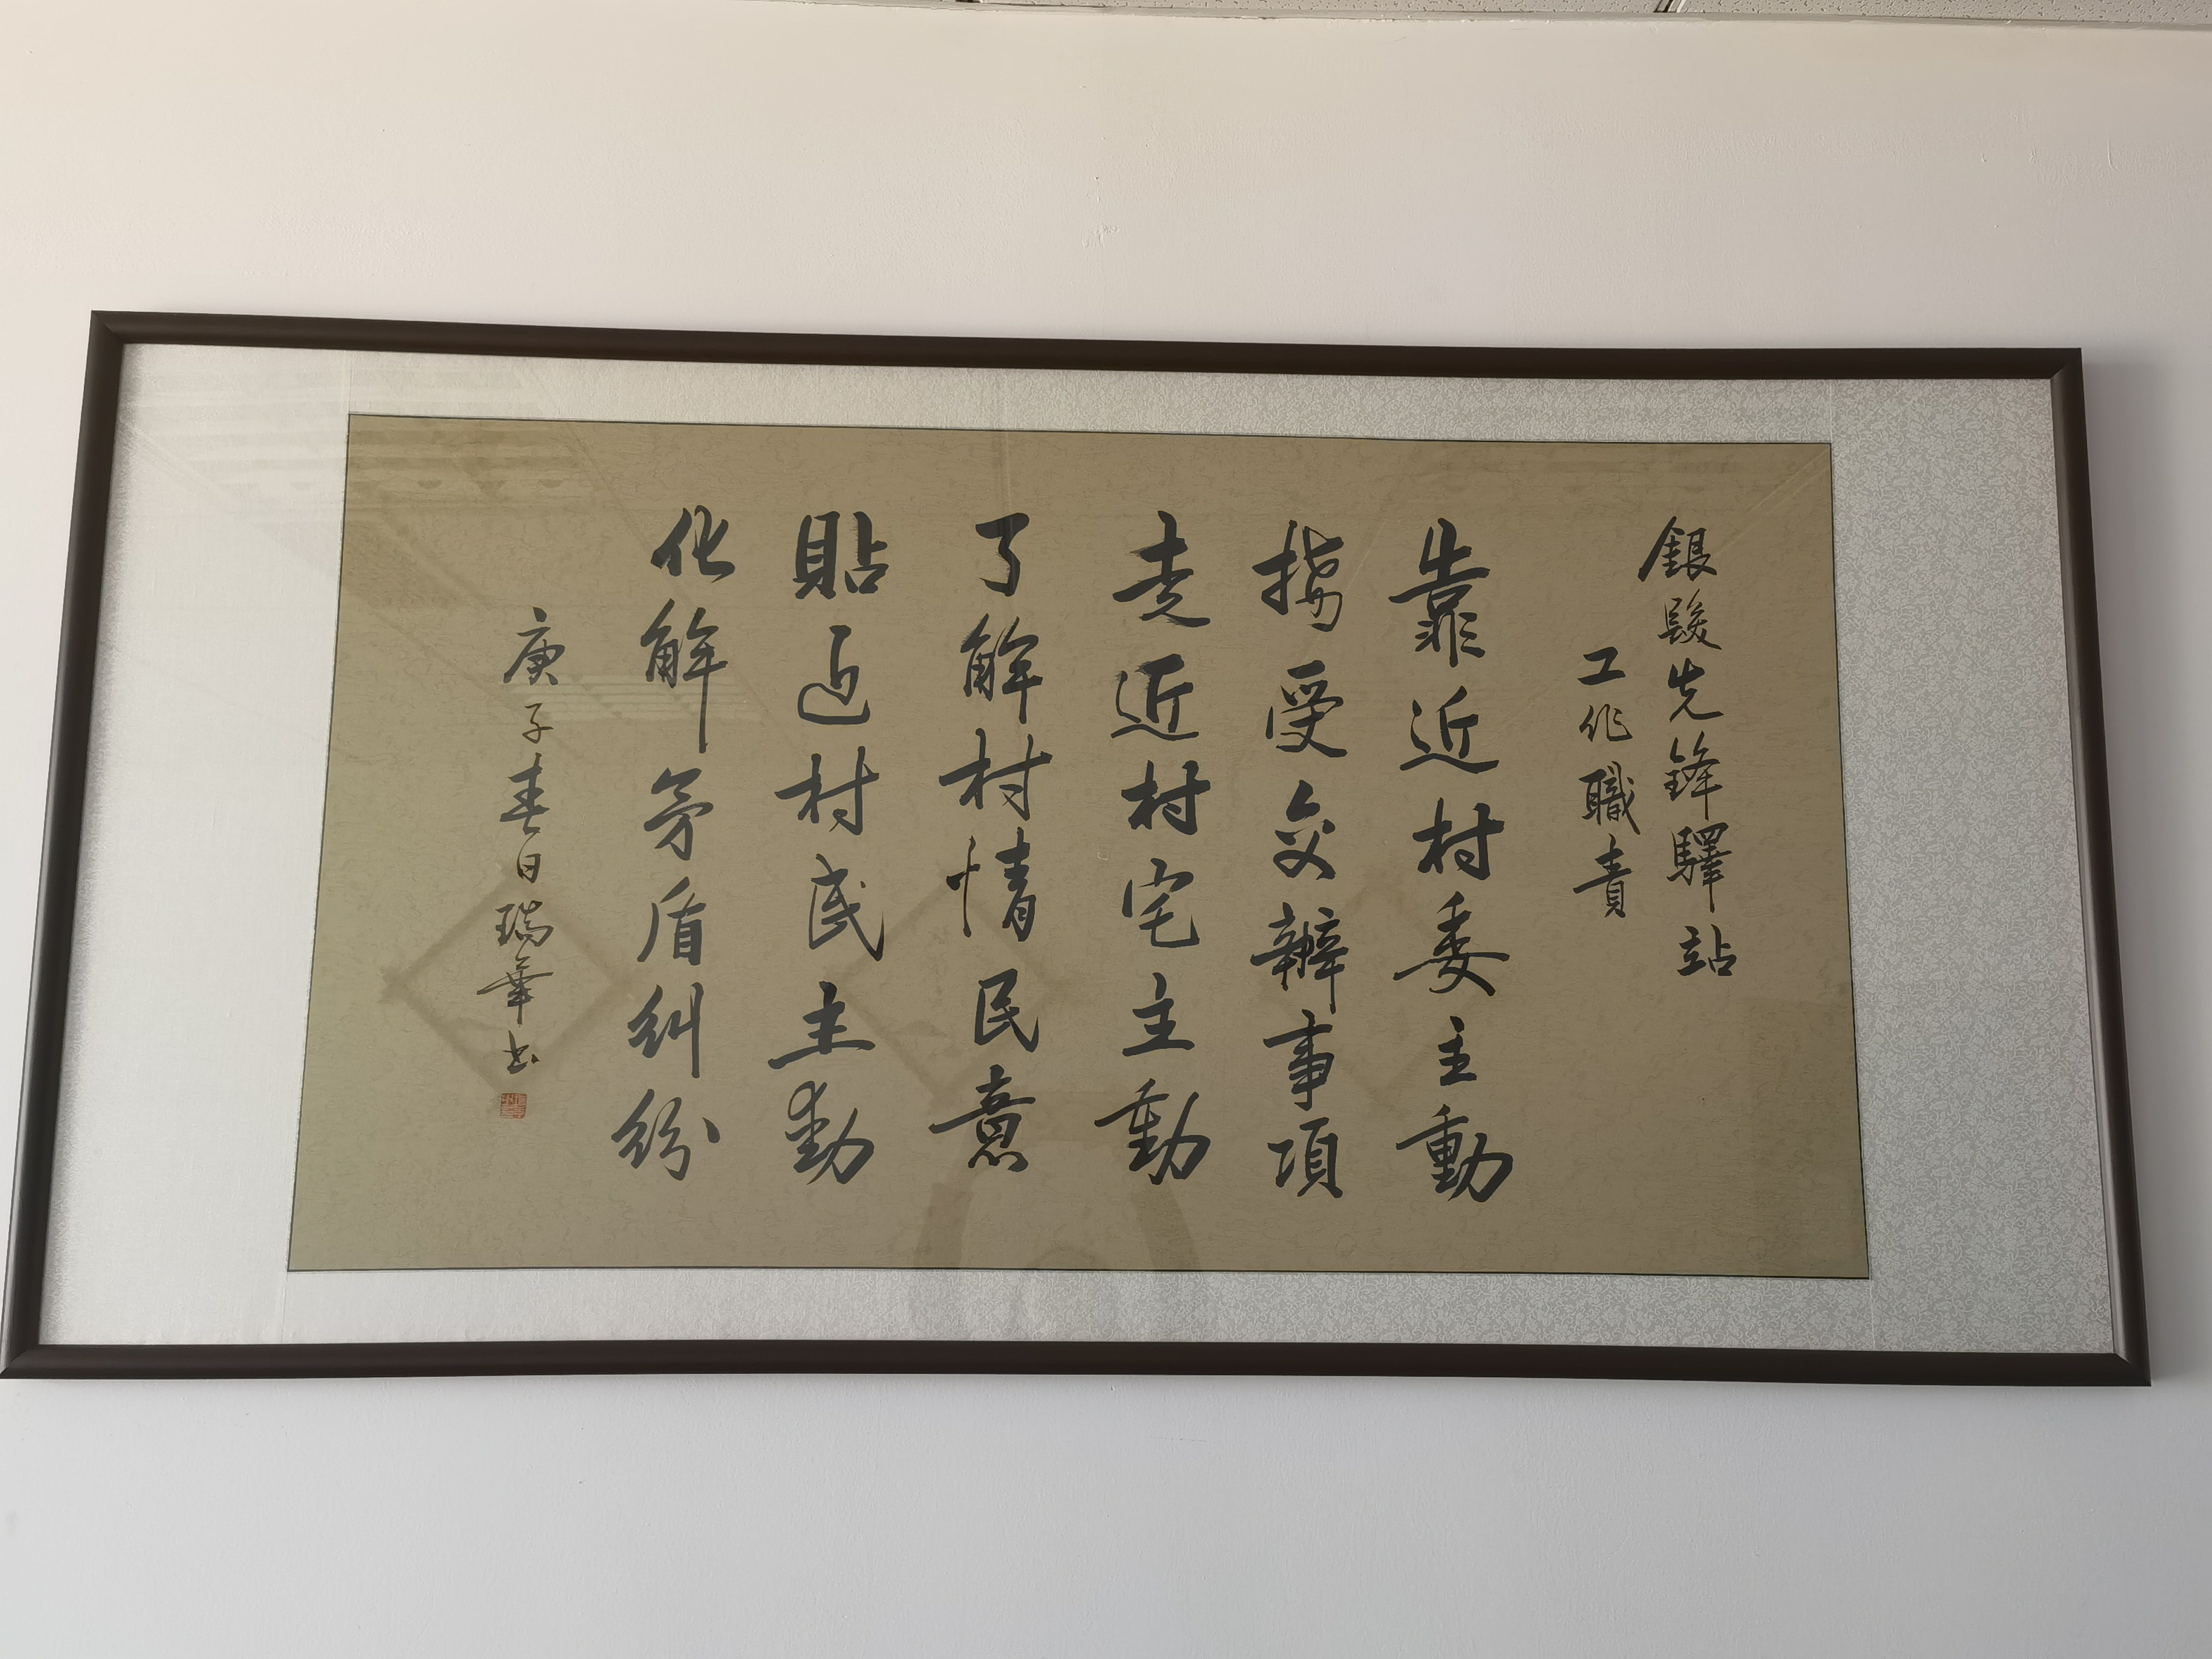 銀髮先鋒驛站
工作職責
靠近村委主動
接受交辦事項
走近村宅主動
了解村情民意
貼近村民主動
化解矛盾糾紛
庚子春日瑞華书